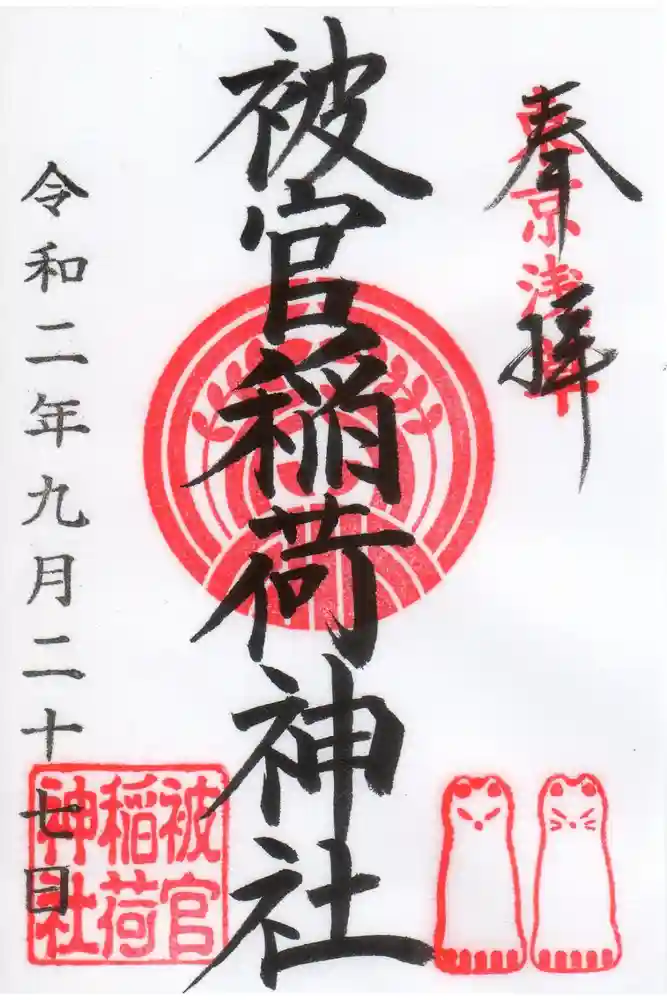 奉拝
東京浅草
被官稲荷神社
令和二年九月二十七日
被官
稲荷
神社